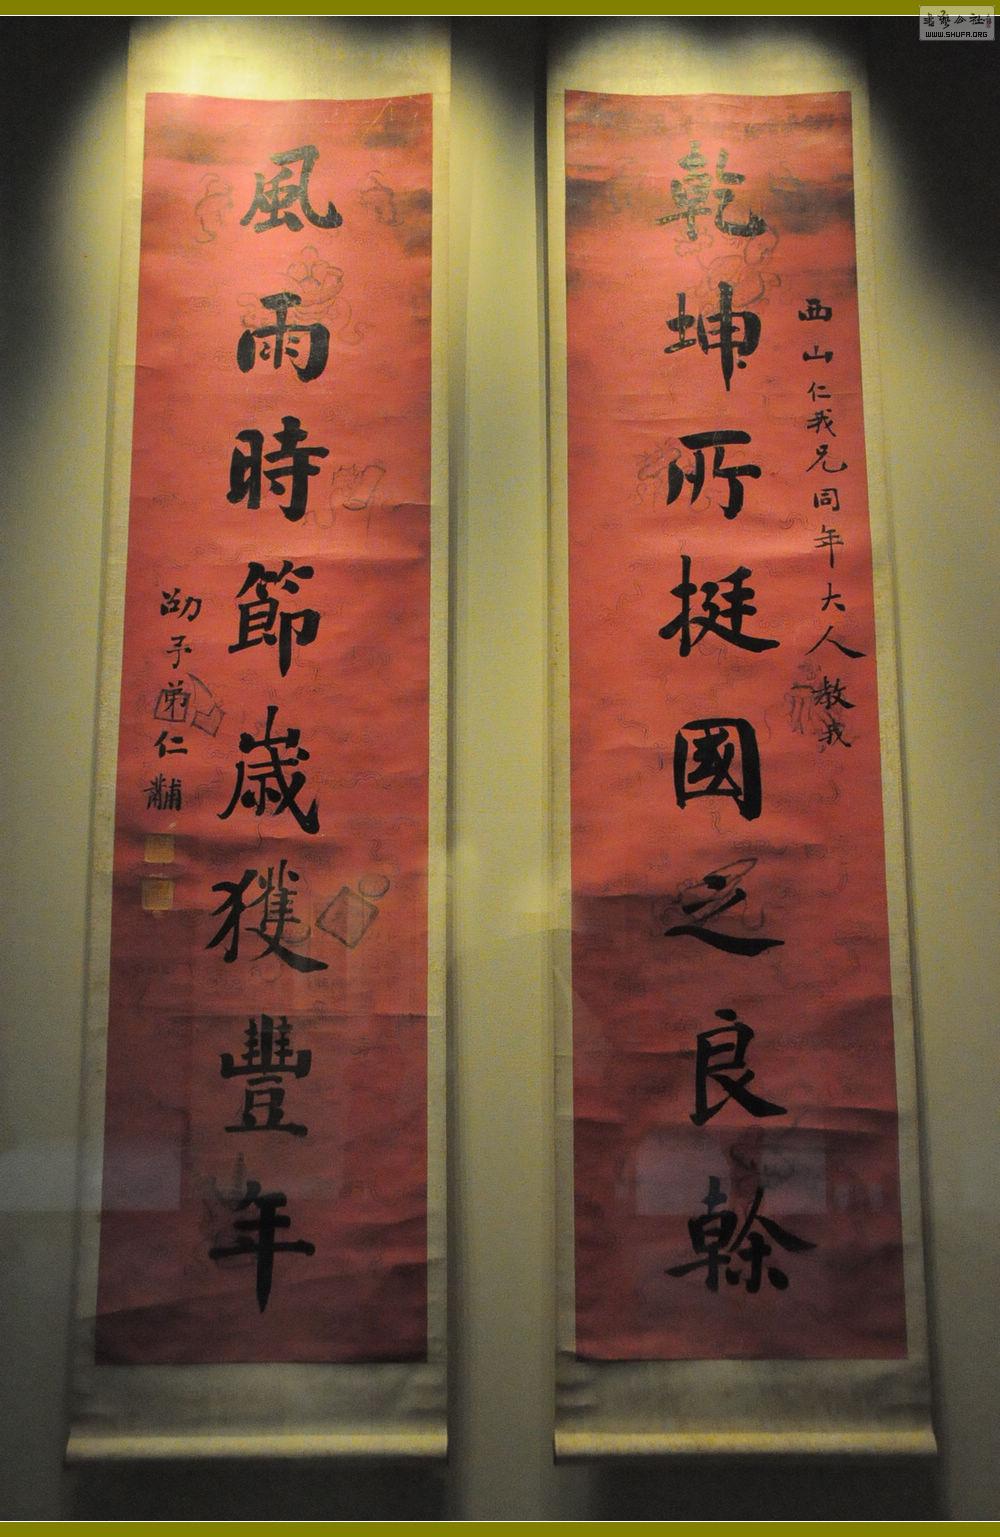 乾坤所挺國之良榦
西山仁我兄同年大人教我
風雨時節歲獲豐年
劭予弟仁黼
WWW.SHUFA.ORG